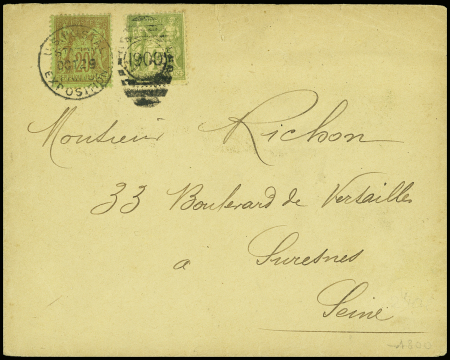 EXPOSITION
1900
20
Monsieur Richon
33 Boulevard de Versailles
a Suresnes
Seine